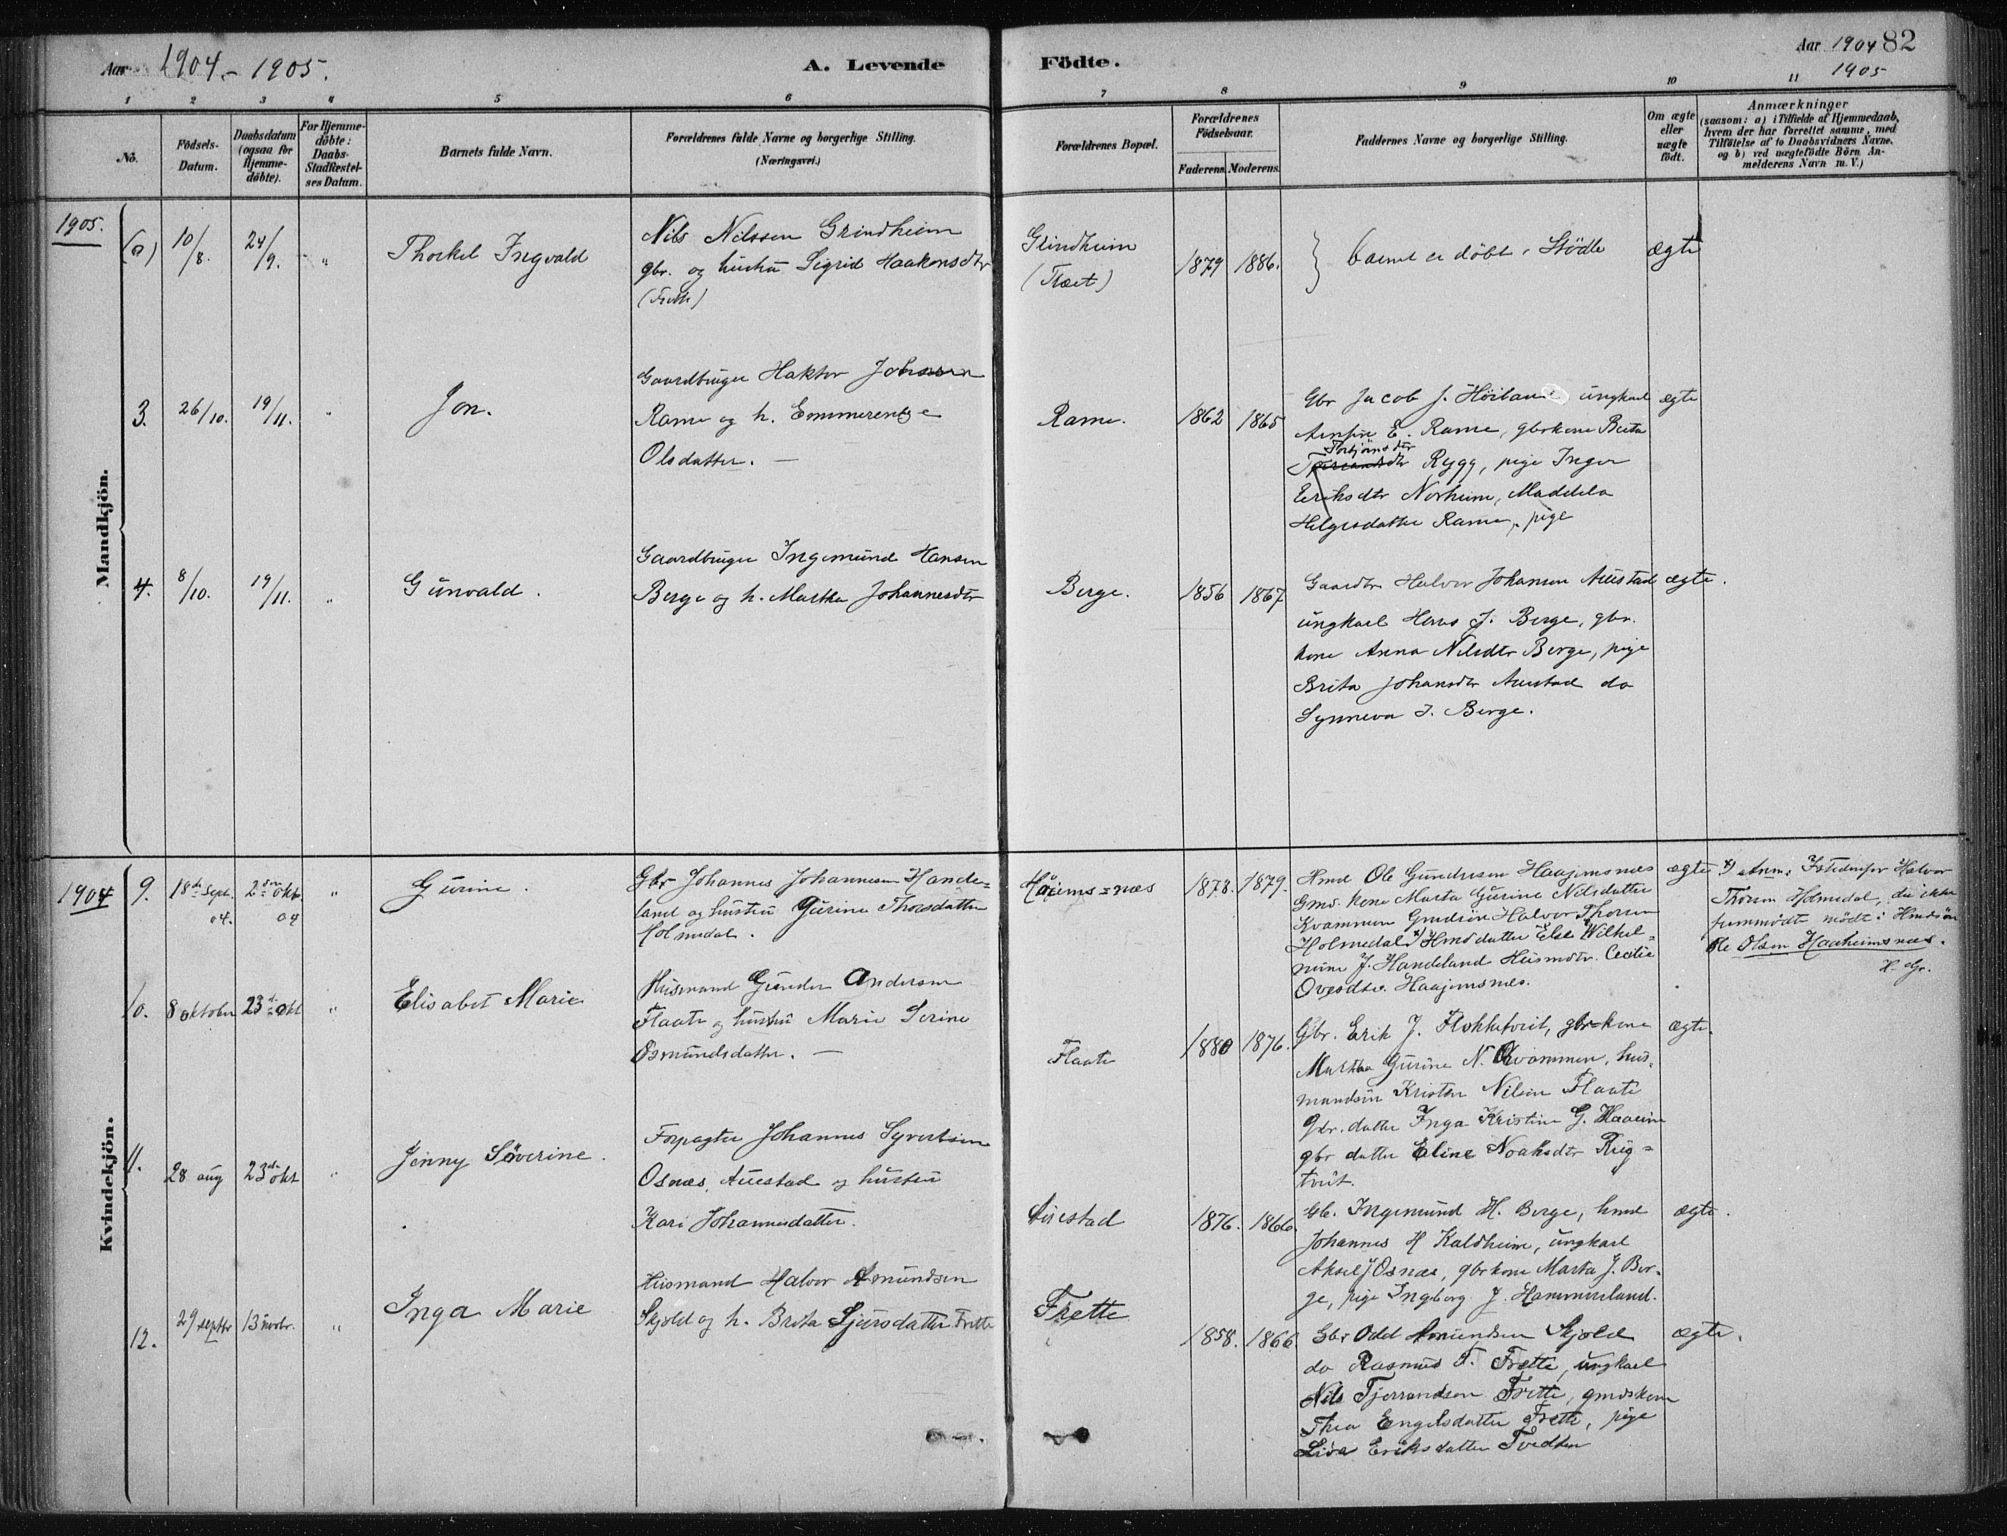 Aar 1904 - 1905.
A. Levende Födte.
Aar 1904 82
1905
1 2 3 4 5 6 7 8 9 10 11
No.
Födsels-Datum.
Daabsdatum (ogsaa for Hjemme-döbte).
For Hjemme-döbte: Daabs-Stadfæstel-ses Datum.
Barnets fulde Navn.
Forældrenes fulde Navne og borgerlige Stilling.
(Næringsvei.)
Forældrenes Bopæl.
Forældrenes Födselsaar.
Faderens. Moderens.
Faddernes Navne og borgerlige Stilling.
Om ægte eller uægte födt.
Anmærkninger
(saasom: a) i Tilfælde af Hjemmedaab,
hvem der har forrettet samme, med
Tilföielse af to Daabsvidners Navne,
og b) ved uægtefödte Börn An-
melderens Navn m. V.)
Mandkjön.
1905.
(a) 10/8. 24/9. " Thorkel Ingvald
Nils Nilssen Grindheim
gbr. og hustru Sigrid Haakonsdtr
Grindheim
1879 1886. } barnet er döbt i Stödle ægte
3. 26/10. 19/11. " Jon.
Gaardbruger Haktor Johnsen
Rame og h. Emmerentse
Olsdatter. —
Rame. 1862 1865
Gbr Jacob J. Höiland ungkarl ægte
E. Rame, gbrkone Berta
Torbjörnsdtr
Rygg, pige Inger
Eriksdtr Norheim, Maddela
Helgesdatter Rame, pige
4. 8/10. 19/11. " Gunvald.
Gaardbruger Ingemund Hansen
Berge og h. Martha Johannesdtr
Berge. 1856 1867
Gaardbr Halvor Johansen Auestad ægte.
ungkarl Hans J. Berge, gbr.
kone Anna Nilsdtr Berge, pige
Brita Johansdtr Auestad do
Synneva J. Berge.
Kvindekjön.
1904
9. 18de Sept. 04. 2den Okt. 04 " Gurine.
Gbr Johannes Johannesen Hande-
land og hustru Gurine Thorsdatter
Holmedal.
Haaiems-næs 1878. 1879.
Hmd Ole Gundersen Haajemsnæs ægte
Gmds. kone Marta Gurine Nilsdatter
Kvammen Gmdsön Halvor Thorsen
Holmedal x) Hmdsdatter Else Wilhel-
mine J. Handeland Husmdtr. Cecilie
Ovesdtr. Haajemsnæs.
x) Anm: Istedenfor Halvor
Thorsen Holmedal, da ikke
fremmödt mödte: Hmdsön
Ole Olsen Haaheimsnæs.
H. Gr.
10. 8 oktober 23de okt " Elisabet Marie
Husmand Gunder Andersen
Flaate og hustru Marie Serine
Osmundsdatter. —
Flaate 1880 1876.
Gbr. Erik J. Flokketveit, gbr kone ægte.
Martha Gurine N. Kvammen, hus-
mandsön Kristen Nilsen Flaate
gbr. datter Inga Kristine G. Haaeim
gbr datter Eline Noaksdtr Rüg-
tveit.
11. 28 aug 23de okt " Jenny Söverine.
Forpagter Johannes Syvertsen
Osnæs, Auestad og hustru
Kari Johannesdatter.
Auestad 1876. 1866.
Gb. Ingemund H. Berge, hmd ægte.
Johannes H Kaldheim, ungkarl
Aksel J Osnæs, gbrkone Marta J. Ber-
ge, pige Ingborg J. Hammersland.
12. 29 septbr 13 novbr. " Inga Marie
Husmand Halvor Amundsen
Skjold og h. Brita Sjursdatter Frette
Frette 1858. 1866.
Gbr Odd Amundsen Skjold ægte.
do Rasmus T. Frette, ungkarl
Nils Tjerrandsen Frette, gmdskone
Thea Engelsdatter Frette, pige
Lisa Eriksdatter Tvedten